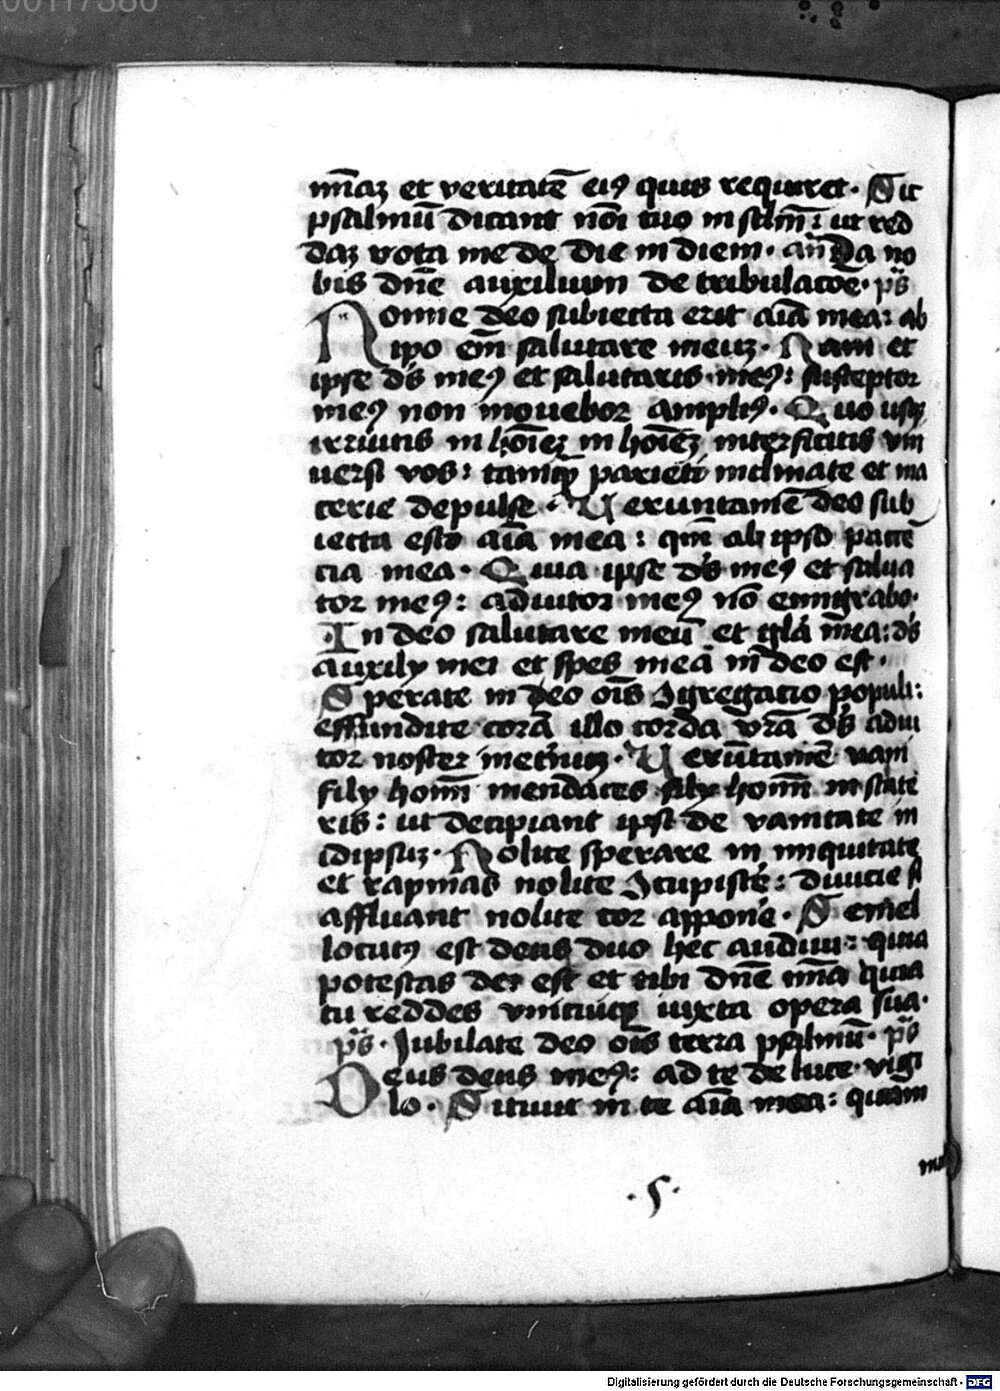 00117380
mīaʒ et veritatē eiꝰ quis requiret · Sic
psalmū dicam nōi tuo in sclm̄ : ut red
daʒ vota mea de die in diem · an̄ Da no
bis dn̄e auxilium de tribulacōe · p̄s
Nonne deo subiecta erit aīa mea : ab
ipo em̄ salutare meuʒ · Nam et
ipse dꝰs meꝰ et salutaris meꝰ : susceptor
meꝰ non movebor ampliꝰ · Quo usqʒ
irruitis in hoīeʒ in hoīeʒ interficitis vni
versi vos : tamqʒ parieti inclinate et ma
cerie depulse · Veruntamē deo sub
iecta esto aīa mea : qm̄ ab ipso pacie
cia mea · Quia ipse dꝰs meꝰ et salua
tor meꝰ : adiutor meꝰ nō emigrabo ·
In deo salutare meū et glā mea : dꝰs
auxily mei et spes mea in deo est ·
Sperate in deo oīs ꝯgregatio populi :
effundite corā illo corda vrā dꝰs adiu
tor noster in eternuʒ · Verūtamē vani
fily homī mendaces fily homī in state
ris : ut decipiant ipsi de vanitate in
idipsuʒ · Nolite sperare in iniquitate
et rapinas nolite ꝯcupiscē : diuicie si
affluant nolite cor appone · Semel
locutꝰ est deus duo hec audiui : quia
potestas dei est et tibi dn̄e mīa quia
tu reddes vnicuiqʒ iuxta opera sua ·
p̄s · Jubilate deo oīs terra psalmū · p̄s
Deus deus meꝰ : ad te de luce vigi
lo · Sitiuit in te aīa mea : quam
· 5 ·
Digitalisierung gefördert durch die Deutsche Forschungsgemeinschaft - DFG